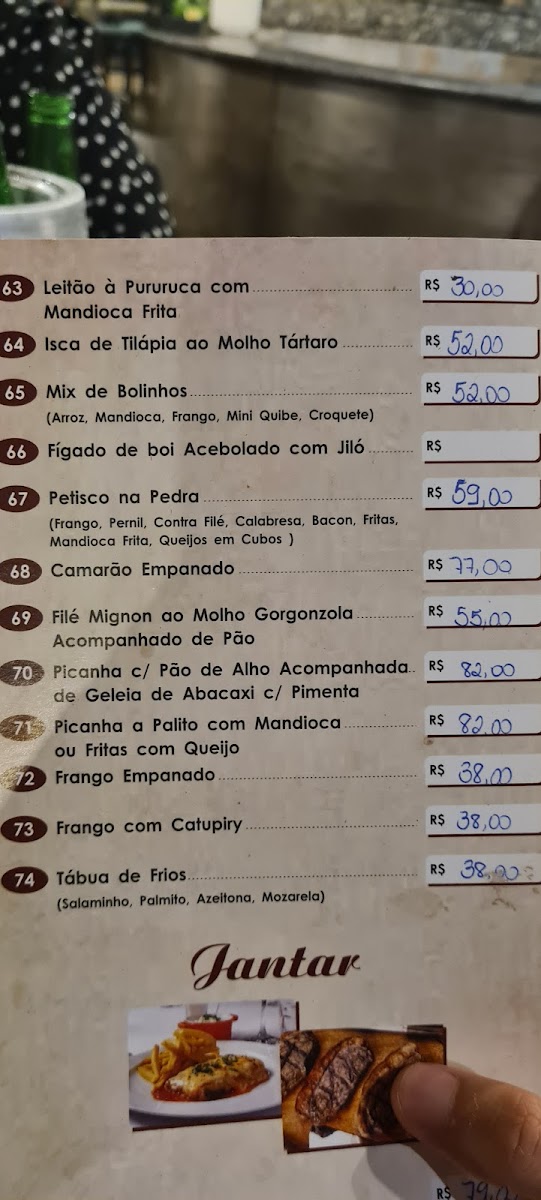 63 Leitão à Pururuca com R$ 30,00
Mandioca Frita
64 Isca de Tilápia ao Molho Tártaro R$ 52,00
65 Mix de Bolinhos R$ 52,00
(Arroz, Mandioca, Frango, Mini Quibe, Croquete)
66 Fígado de boi Acebolado com Jiló R$
67 Petisco na Pedra R$ 59,00
(Frango, Pernil, Contra Filé, Calabresa, Bacon, Fritas,
Mandioca Frita, Queijos em Cubos )
68 Camarão Empanado R$ 77,00
69 Filé Mignon ao Molho Gorgonzola R$ 55,00
Acompanhado de Pão
70 Picanha c/ Pão de Alho Acompanhada R$ 82,00
de Geleia de Abacaxi c/ Pimenta
71 Picanha a Palito com Mandioca R$ 82,00
ou Fritas com Queijo
72 Frango Empanado R$ 38,00
73 Frango com Catupiry R$ 38,00
74 Tábua de Frios R$ 38,00
(Salaminho, Palmito, Azeitona, Mozarela)
Jantar
R$